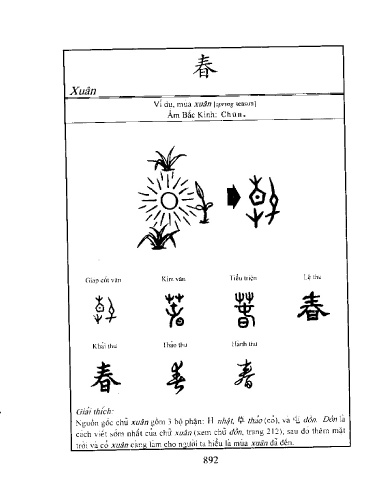 春
Xuân
Ví dụ, mùa xuân [spring season]
Âm Bắc Kinh: Chun.
Giáp cốt văn Kim văn Tiểu triện Lệ thư
春
Khải thư Thảo thư Hành thư
春
Giải thích:
Nguồn gốc chữ xuân gồm 3 bộ phận: 日 nhật, 艸 thảo (cỏ), và 屯 đồn. Đồn là
cách viết sớm nhất của chữ xuân (xem chữ đồn, trang 212), sau đó thêm mặt
trời và cỏ xuân càng làm cho người ta hiểu là mùa xuân đã đến.
892